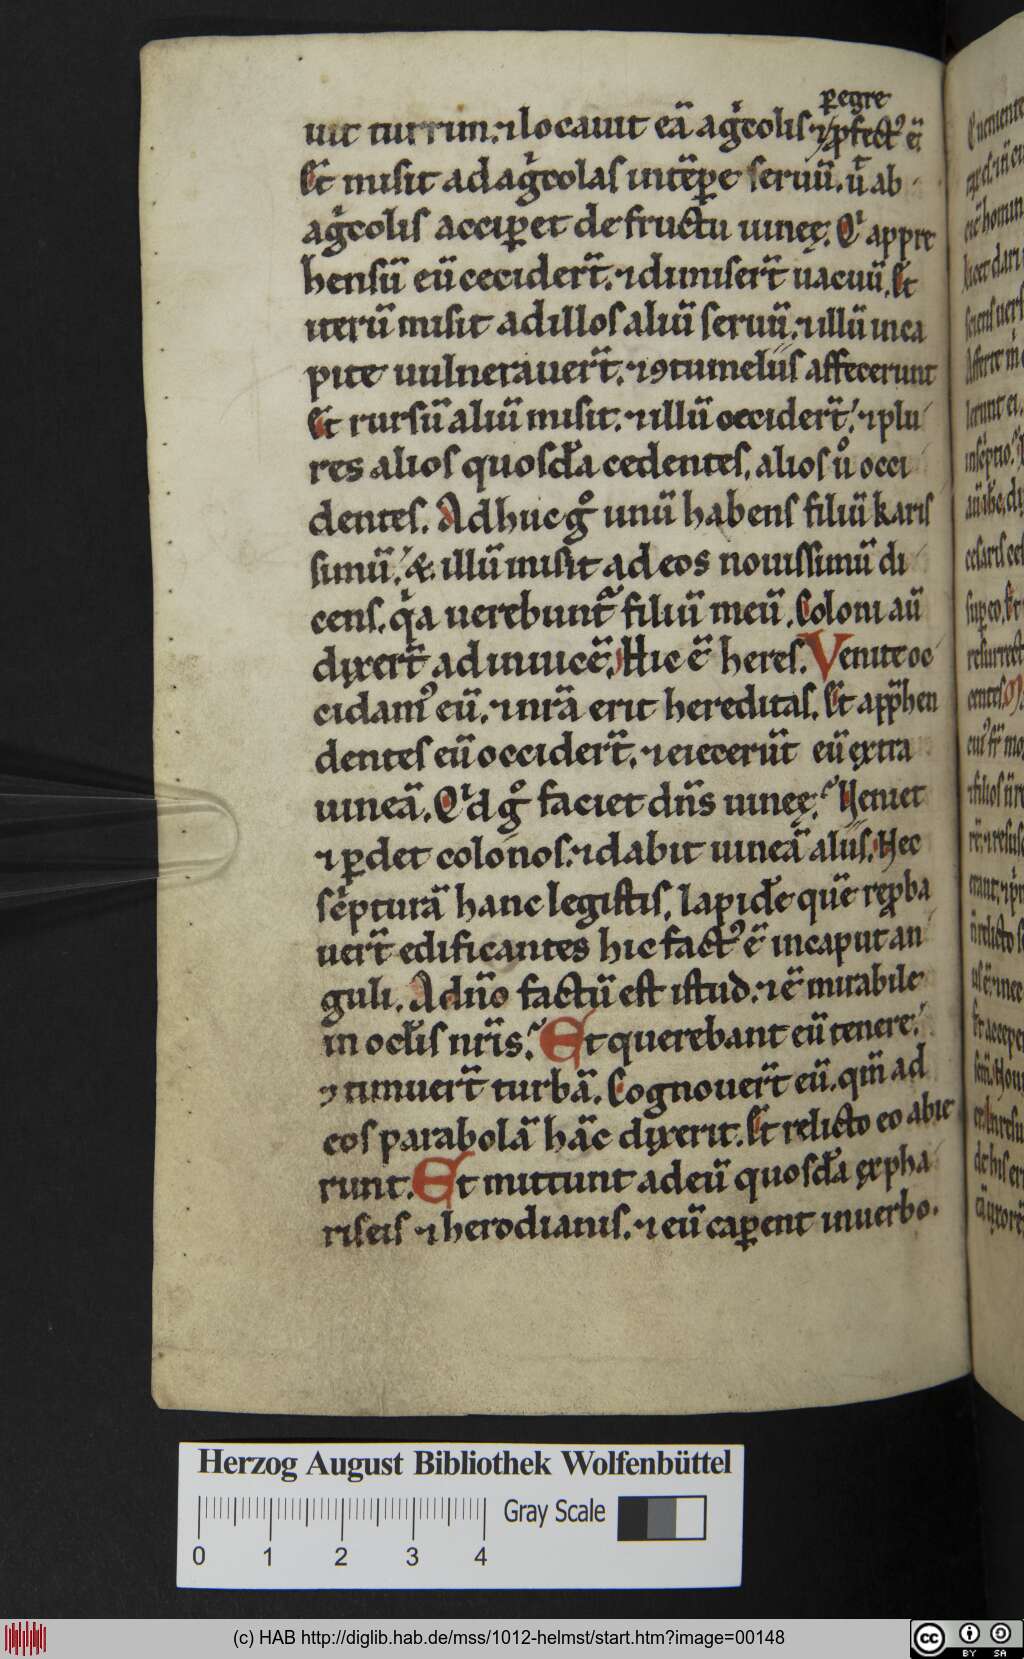 peregre
uit turrim. ⁊ locauit eā agͥcolis ⁊ ꝓfectꝰ ē.
Et misit ad agͥcolas in tēpore seruū. ut ab
agͥcolis acciꝑet de fructu uineę. Qͥ appre
hensū eū cecidert̄. ⁊ dimisert̄ uacuū. Et
iterū misit ad illos aliū seruū. ⁊ illū in ca
pite uulnerauert̄. ⁊ ꝯtumeliis affecerunt
Et rursū aliū misit. ⁊ illū occidert̄. ⁊ plu
res alios quosdā cedentes, alios ů occi
dentes. Adhuc gͦ unū habens filiū karis
simū. & illū misit ad eos nouissimū di
cens. qͥa uerebunt᷑ filiū meū. Coloni aū
dixert̄ ad inuicē. Hic ē heres. Venite oc
cidamꝰ eū. ⁊ nr̄a erit hereditas. Et app̄hen
dentes eū occidert̄. ⁊ eiecerūt eū extra
uineā. Qͥd gͦ faciet dn̄s uineę. Veniet
⁊ ꝑdet colonos. ⁊ dabit uineā aliis. Nec
scͥpturā hanc legistis, lapidē quē reꝓba
uert̄ edificantes hic factꝰ ē in caput an
guli. A dn̄o factū est istud. ⁊ ē mirabile
in oclis nr̄is. Et querebant eū tenere.
⁊ timuert̄ turbā. Cognouert̄ eū. qm̄ ad
eos parabolā hāc dixerit. Et relicto eo abie
runt. Et mittunt ad eū quosdā ex pha
riseis ⁊ herodianis. ⁊ eū caꝑent in uerbo.
Herzog August Bibliothek Wolfenbüttel
Gray Scale
0 1 2 3 4
(c) HAB http://diglib.hab.de/mss/1012-helmst/start.htm?image=00148
cc BY SA